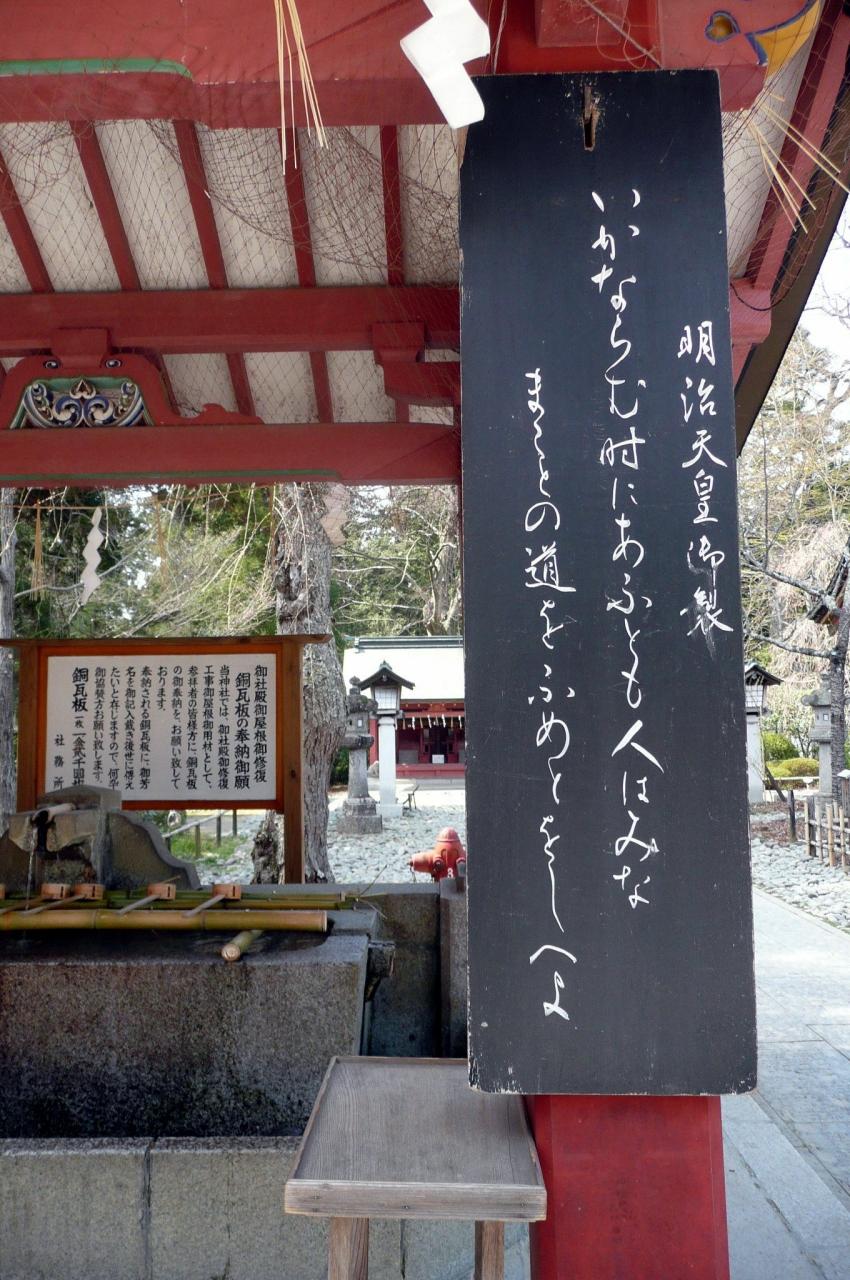 明治天皇御製
いかならむ時にあふとも人はみな
まことの道をふめとをしへよ
御社殿御屋根御修復
銅瓦板の奉納御願
当神社では、御社殿御修復
工事御屋根御用材として、
参拝者の皆様方に、銅瓦板
の御奉納を、お願い致して
おります。
奉納される銅瓦板に、御芳
名を御記入戴き後世に傳え
たいと存じますので、何卒
御協賛方お願い致します。
銅瓦板 一枚 一金弐千圓
社務所